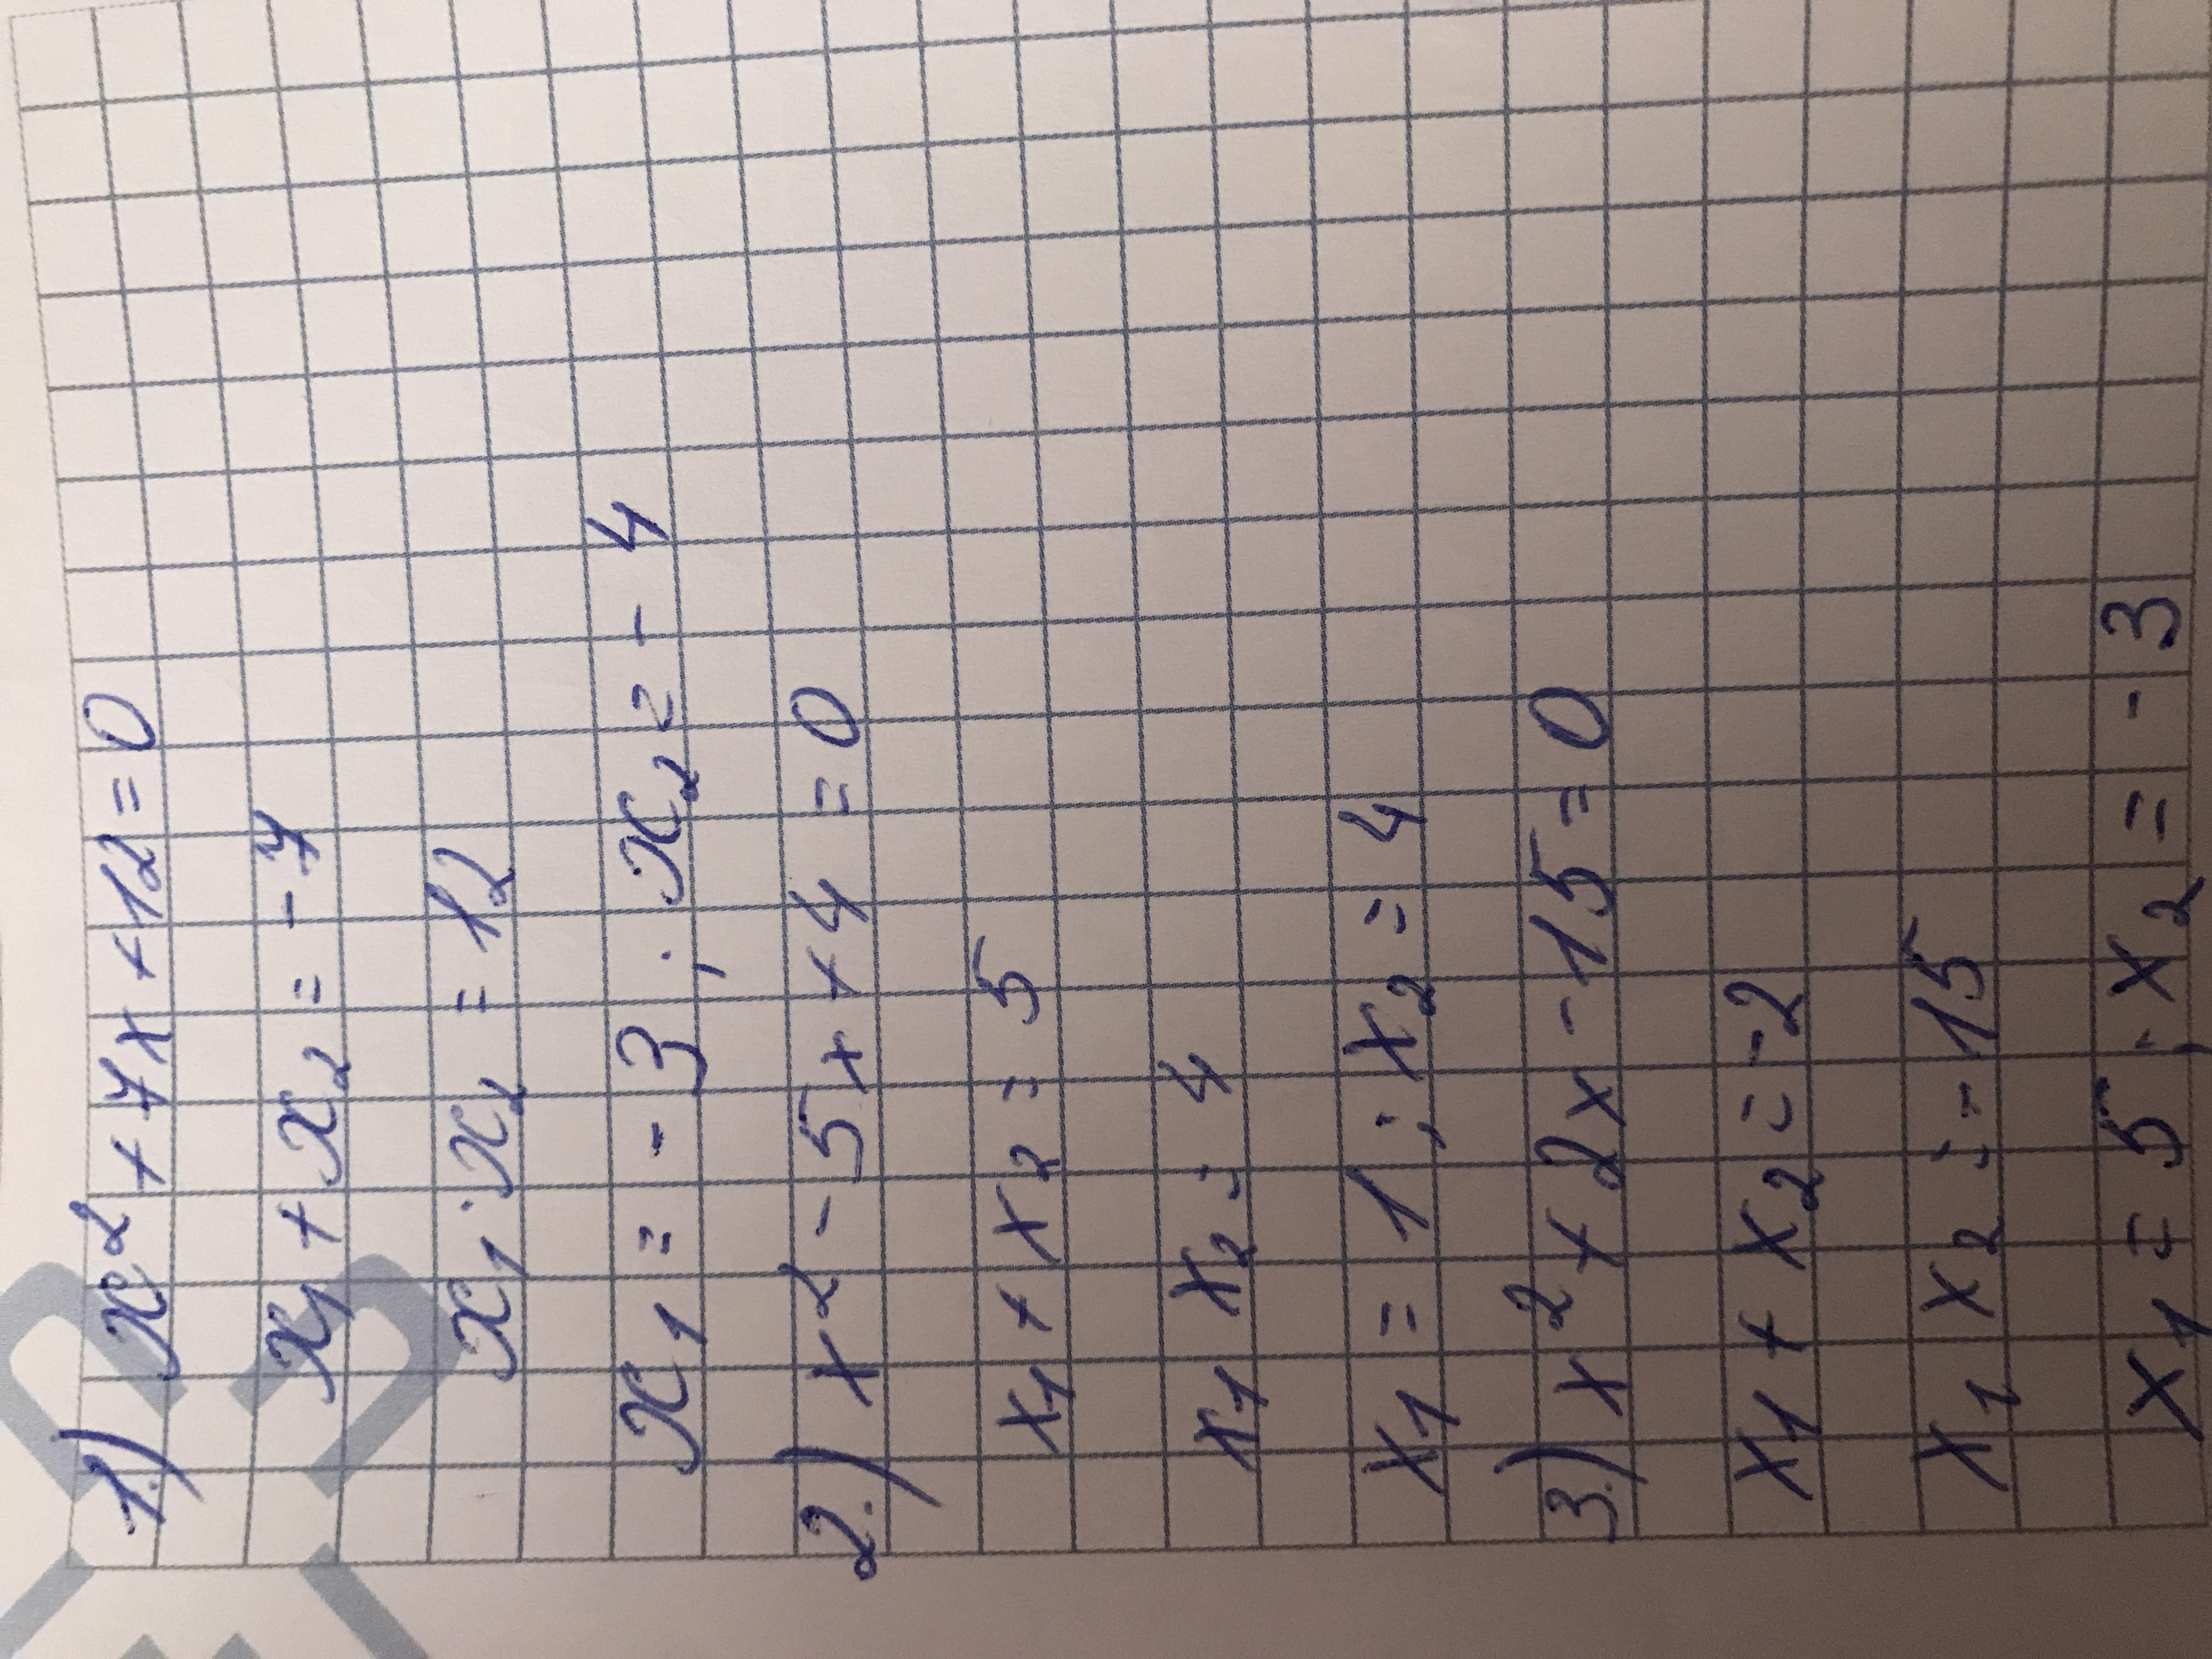 1.) x² + 7x + 12 = 0
x₁ + x₂ = - 7
x₁ · x₂ = 12
x₁ = - 3 ; x₂ = - 4
2.) x² - 5x + 4 = 0
x₁ + x₂ = 5
x₁ x₂ = 4
x₁ = 1 ; x₂ = 4
3.) x² + 2x - 15 = 0
x₁ + x₂ = -2
x₁ x₂ = - 15
x₁ = 5 ; x₂ = - 3